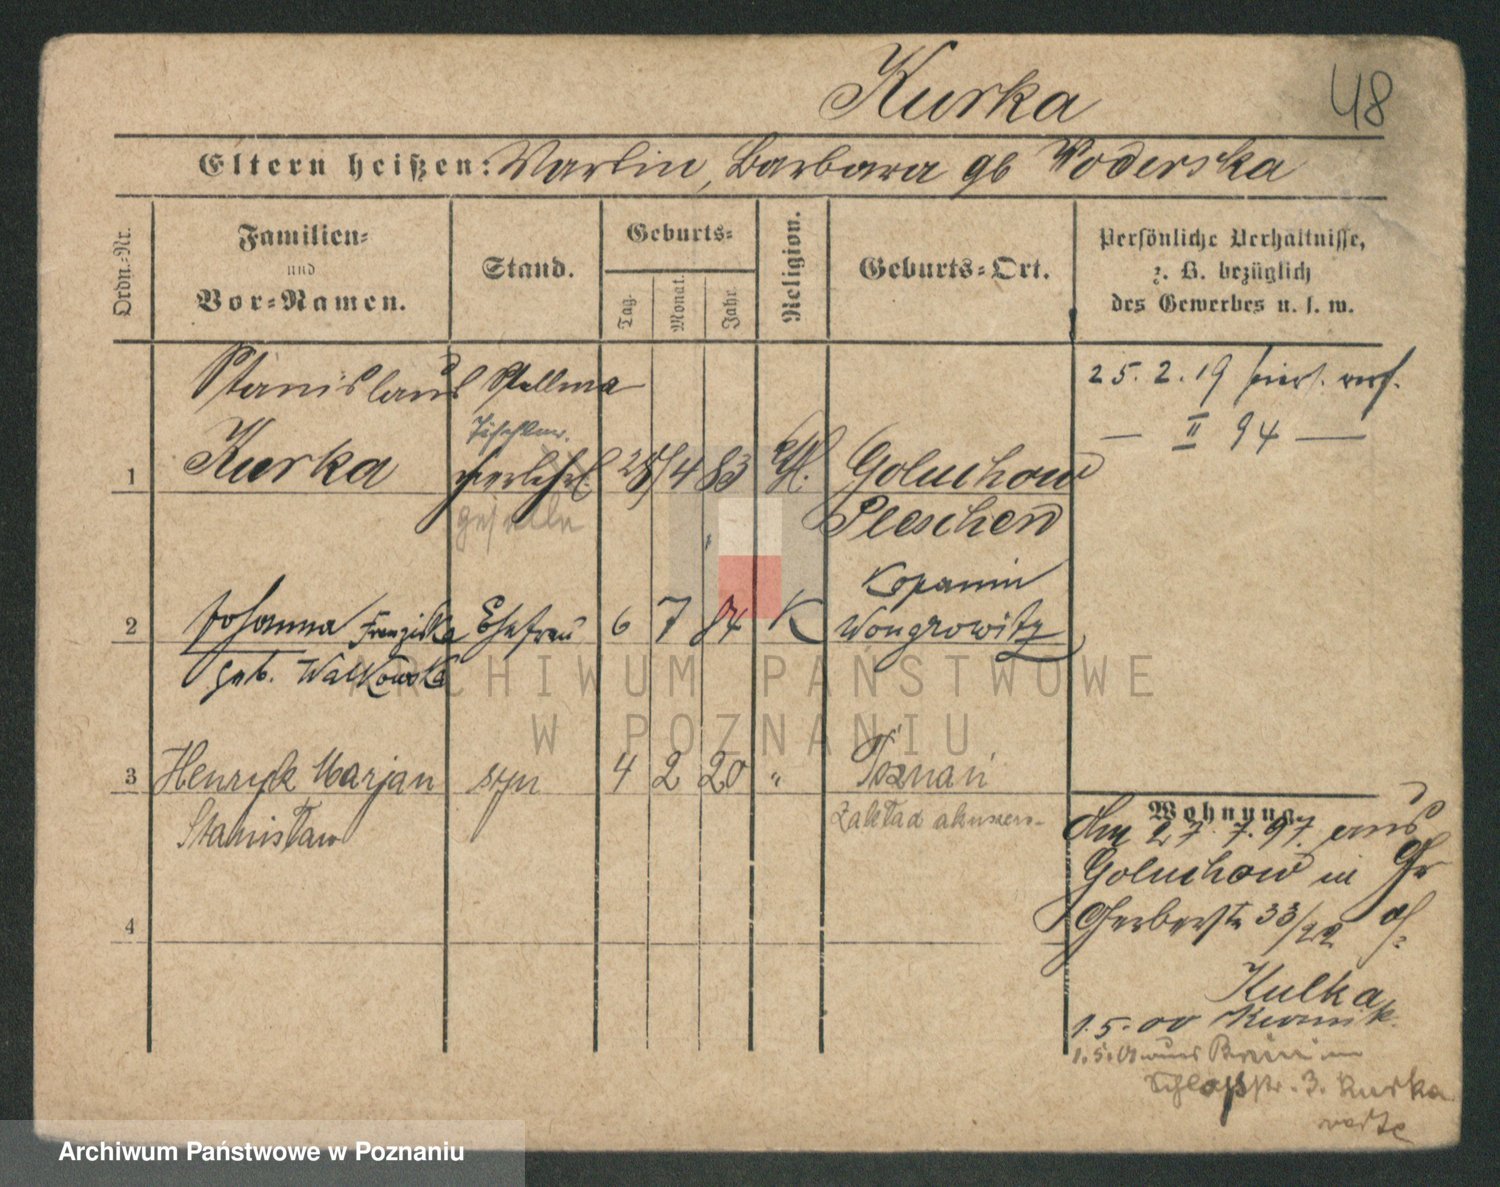 Kurka
48
Eltern heißen: Martin, Barbara gb Woderska
Ordn.-Nr.
Familien-
und
Vor-Namen.
Stand.
Geburts-
Tag.
Monat.
Jahr.
Religion.
Geburts-Ort.
Persönliche Verhältnisse,
z. B. bezüglich
des Gewerbes u. s. w.
Stanislaus Stellma
25. 2. 19
— II 94 —
Tischler
1 Kurka 4 83 Goluchow
geselle
Pleschen
Kopanin
2 Johanna Franziska Ehefrau 6 7 84 K Wongrowitz
geb. Walkowska
3 Henryk Marjan syn 4 2 20 " Poznań
Stanisław
Zakład akuszer-
Wohnung.
Am 27. 7. 97. aus
Goluchow in Gr
Gerberstr 33/
4
Kulka
1. 5. 00
Schloßstr. 3. Kurka
ARCHIWUM PAŃSTWOWE
W POZNANIU
Archiwum Państwowe w Poznaniu